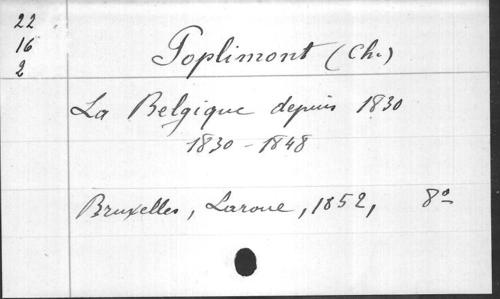 22
16
2
Poplimont (Ch.)
La Belgique depuis 1830
1830 - 1848
Bruxelles, Laroue, 1852, 8º